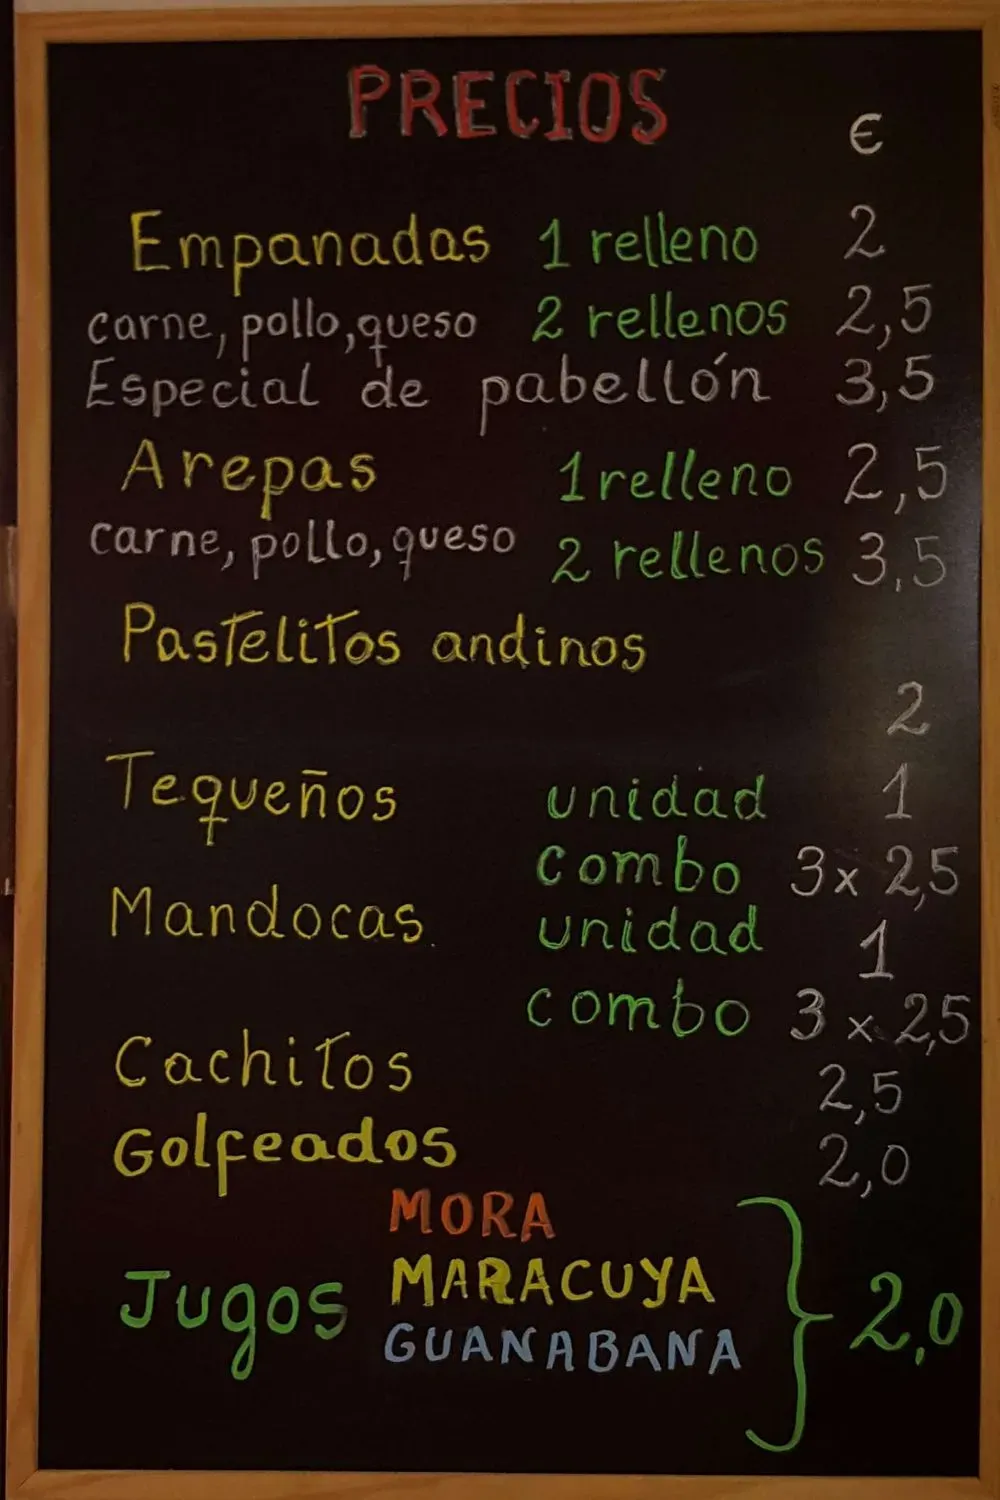 PRECIOS
€
Empanadas 1 relleno 2
carne, pollo, queso 2 rellenos 2,5
Especial de pabellón 3,5
Arepas 1 relleno 2,5
carne, pollo, queso 2 rellenos 3,5
Pastelitos andinos
2
Tequeños unidad 1
combo 3 x 2,5
Mandocas. unidad 1
combo 3 x 2,5
Cachitos 2,5
Golfeados 2,0
MORA
Jugos MARACUYA 2,0
GUANABANA